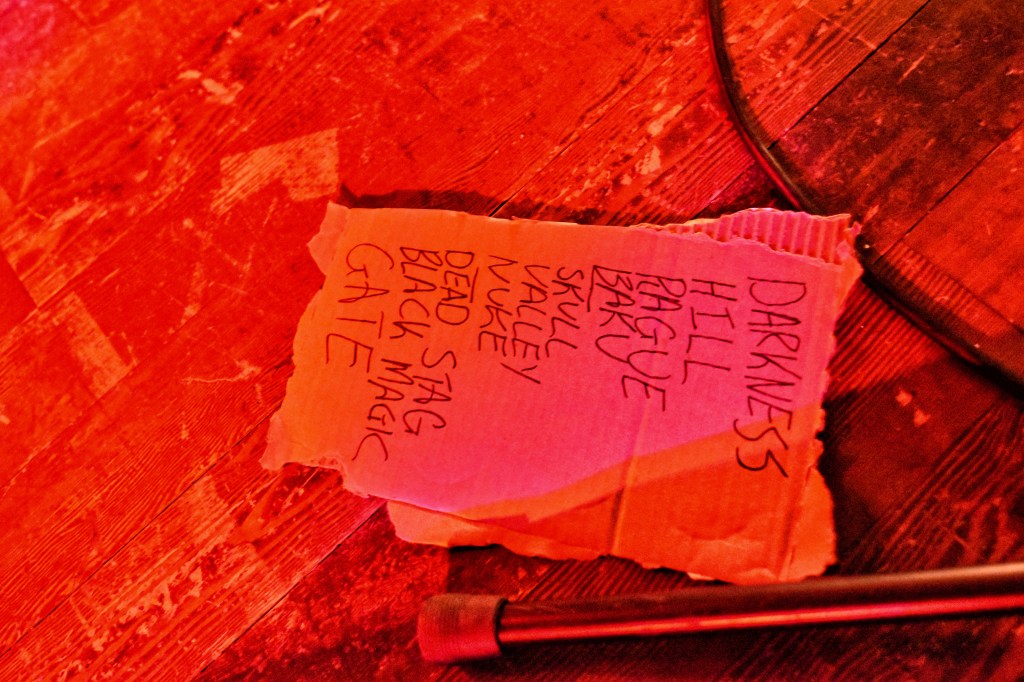 DARKNESS
HILL
RAGUE
BAKU
SKULL
VALLEY
NUKE
DEAD STAG
BLACK MAGIC
GATE